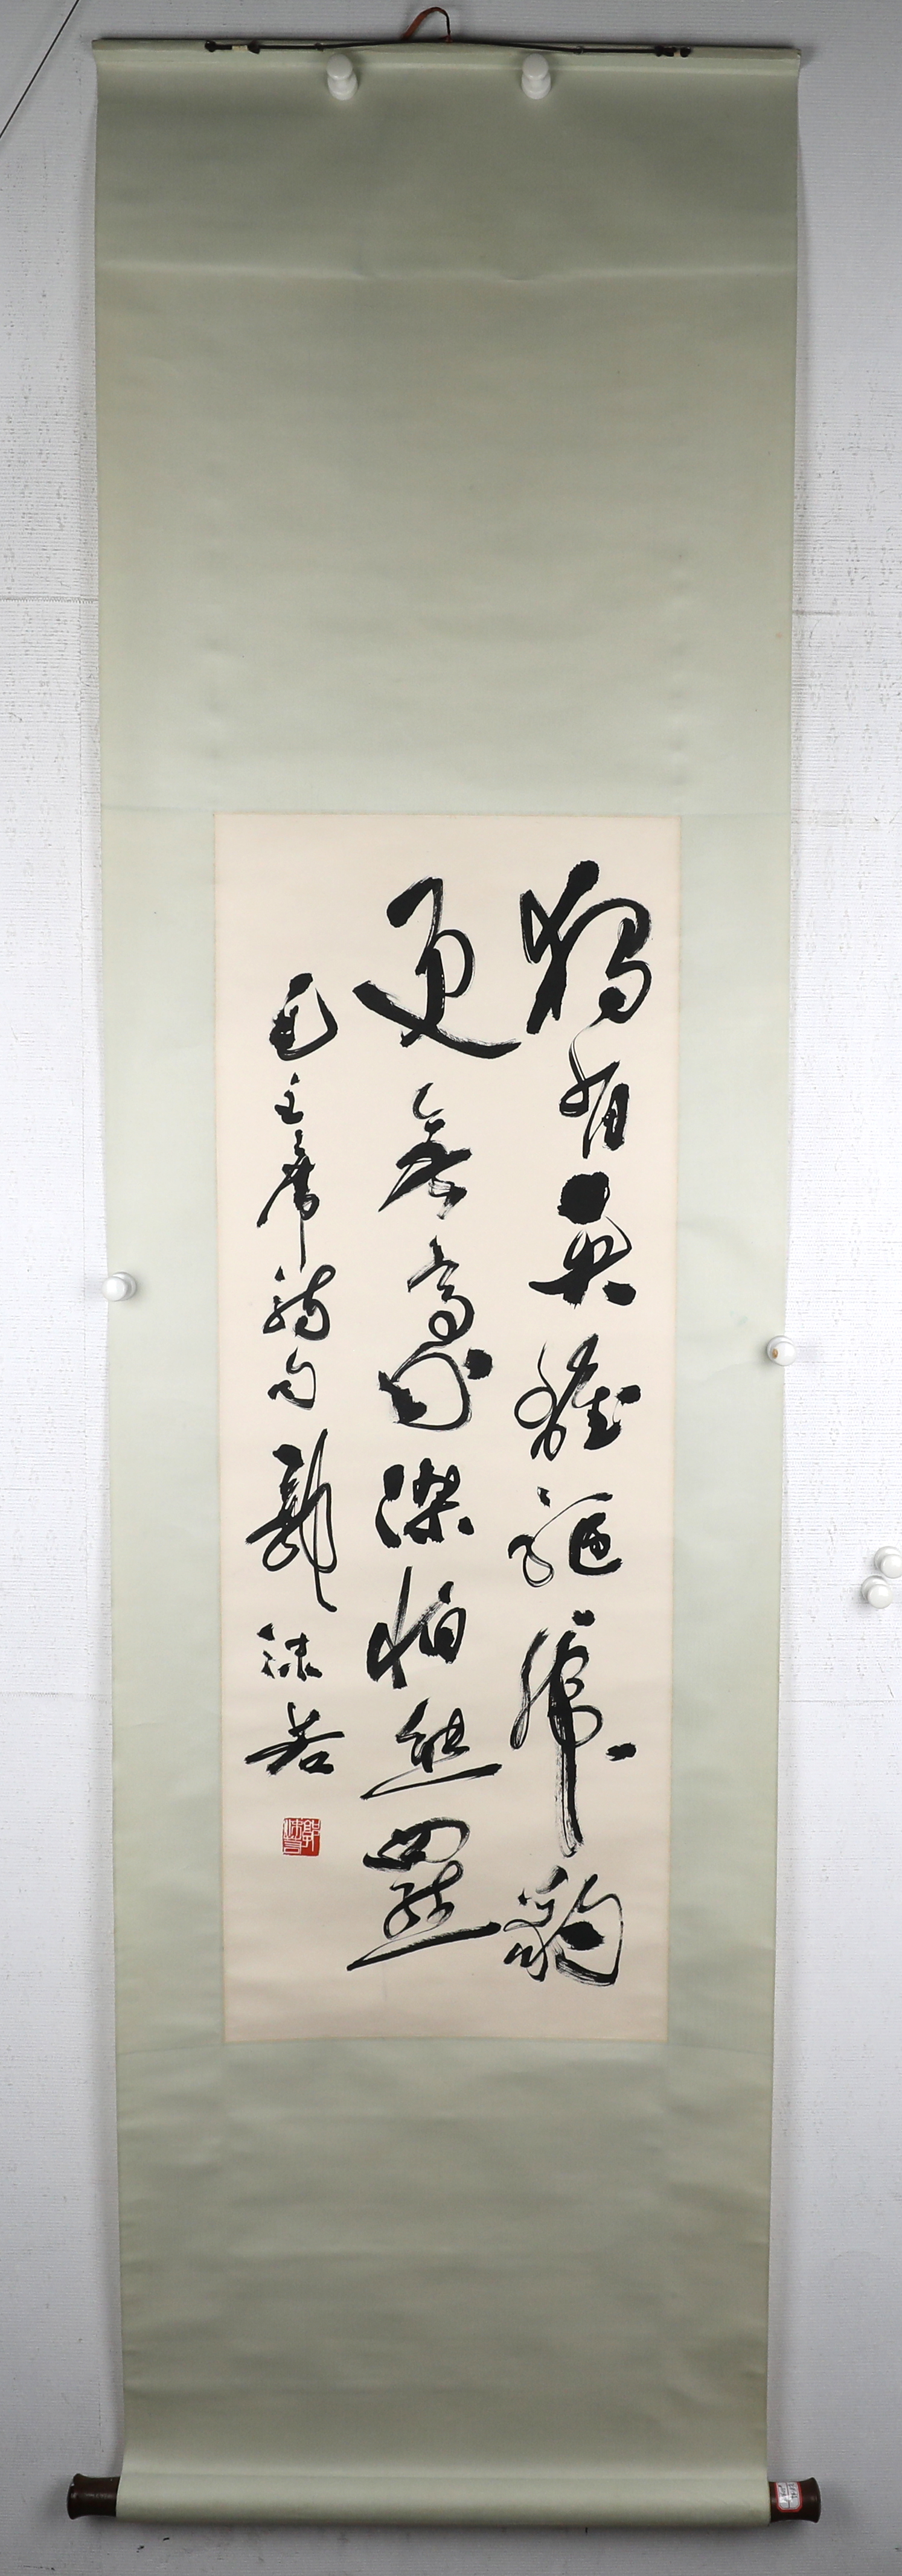 独有英雄驱虎豹
更無豪傑怕熊羆
毛主席詩句 郭沫若
郭沫若